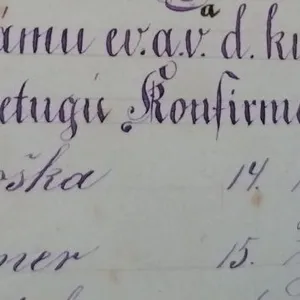 ámu ev. a. v. d. ku
etugú Konfirm
oška 14.
ner 15.